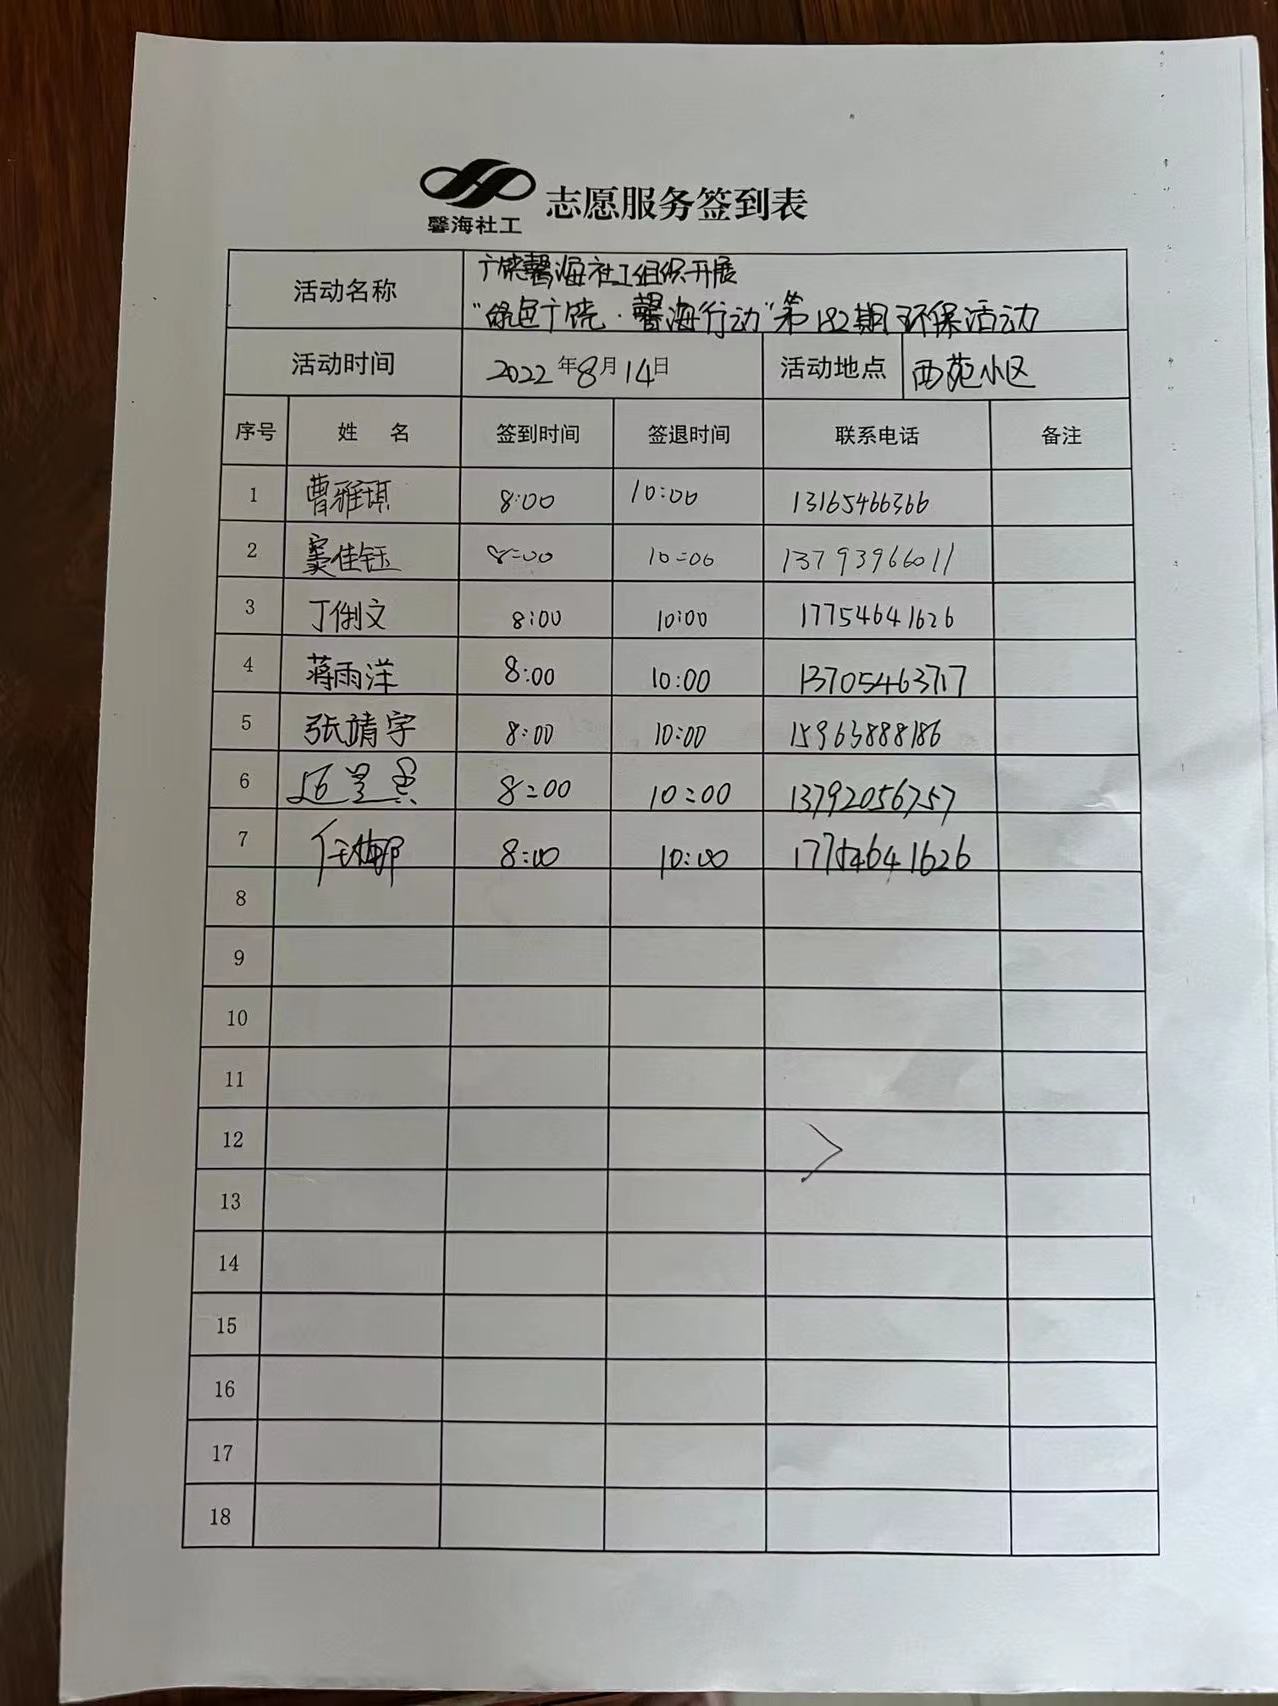 馨海社工
志愿服务签到表
活动名称
广饶馨海社工组织开展
“绿色广饶·馨海行动”第182期环保活动
活动时间 2022年8月14日 活动地点 西苑小区
序号 姓 名 签到时间 签退时间 联系电话 备注
1 曹雅琪 8:00 10:00 13165466366
2 窦佳钰 8:00 10:00 13793966011
3 丁俐文 8:00 10:00 17754641626
4 蒋雨洋 8:00 10:00 13705463717
5 张靖宇 8:00 10:00 15963888186
6 8:00 10:00 13792056757
7 8:00 10:00 17754641626
8
9
10
11
12
13
14
15
16
17
18